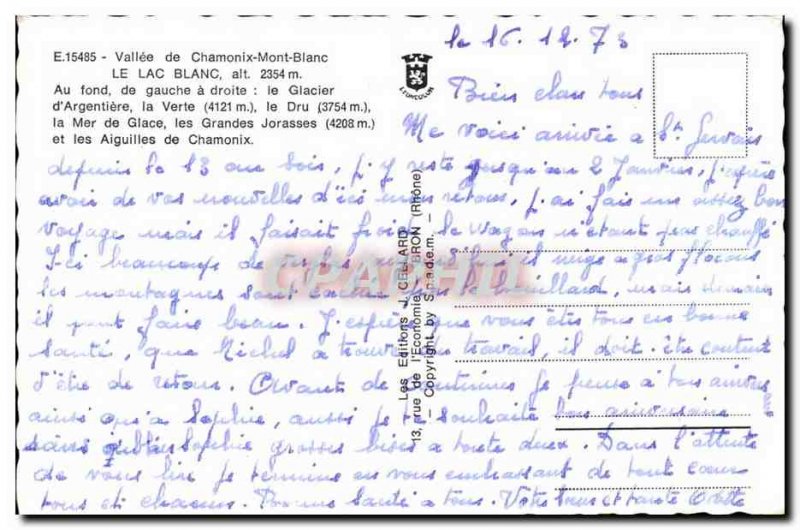 E.15485 - Vallée de Chamonix-Mont-Blanc
LE LAC BLANC, alt. 2354 m.
Au fond, de gauche à droite : le Glacier
d'Argentière, la Verte (4121 m.), le Dru (3754 m.),
la Mer de Glace, les Grandes Jorasses (4208 m.)
et les Aiguilles de Chamonix.
le 16.12.73
Bien chers tous
Me voici arrivée a St Gervais
depuis le 13 au soir, j'y reste jusqu'au 2 Janvier, j'espère
avoir de vos nouvelles d'ici mon retour, j'ai fais un assez bon
voyage mais il faisait froid le wagon n'étant pas chauffé
Ici beaucoup de neige il neige a gros flocons
les montagnes sont le brouillard, mais demain
il peut faire beau. J'espère que vous êtes tous en bonne
santé, que Michel a trouvé du travail, il doit être content
d'être de retour. Avant de je pense a ton anniver
ainsi qu'a Sophie, aussi je te souhaite bon anniversaire
Sophie grosses bises a toute deux. Dans l'attente
de vous lire je termine en vous embrassant de tout coeur
tous et chacun. Bonne Santé a tous. Votre
Les Editions J. CELLARD
13, rue de l'Economie BRON (Rhône)
— Copyright by S.p.a.d.e.m. —
CPAPHIL